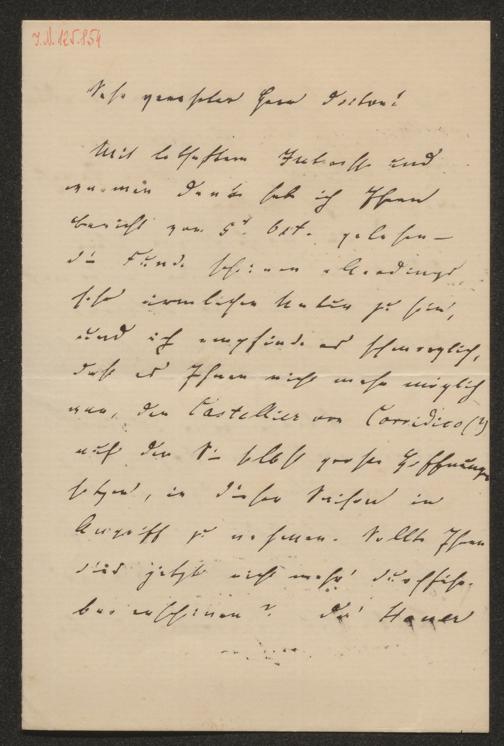 J.N. 125.854
Sehr geehrter Herr Doctor!
Mit lebhaftem Interesse und
warmem Danke hab ich Ihren
Bericht vom 5t. Okt. gelesen –
die Funde scheinen allerdings
sehr ärmlicher Natur zu sein,
und ich empfinde es schmerzlich,
daß es Ihnen nicht mehr möglich
war, den Castellier von Corridico (?)
auf den Sie selbst große Hoffnung
setzen, in dieser Saison in
Angriff zu nehmen. Sollte Ihnen
dies jetzt nicht mehr durchführ-
bar erscheinen? Da Hauer